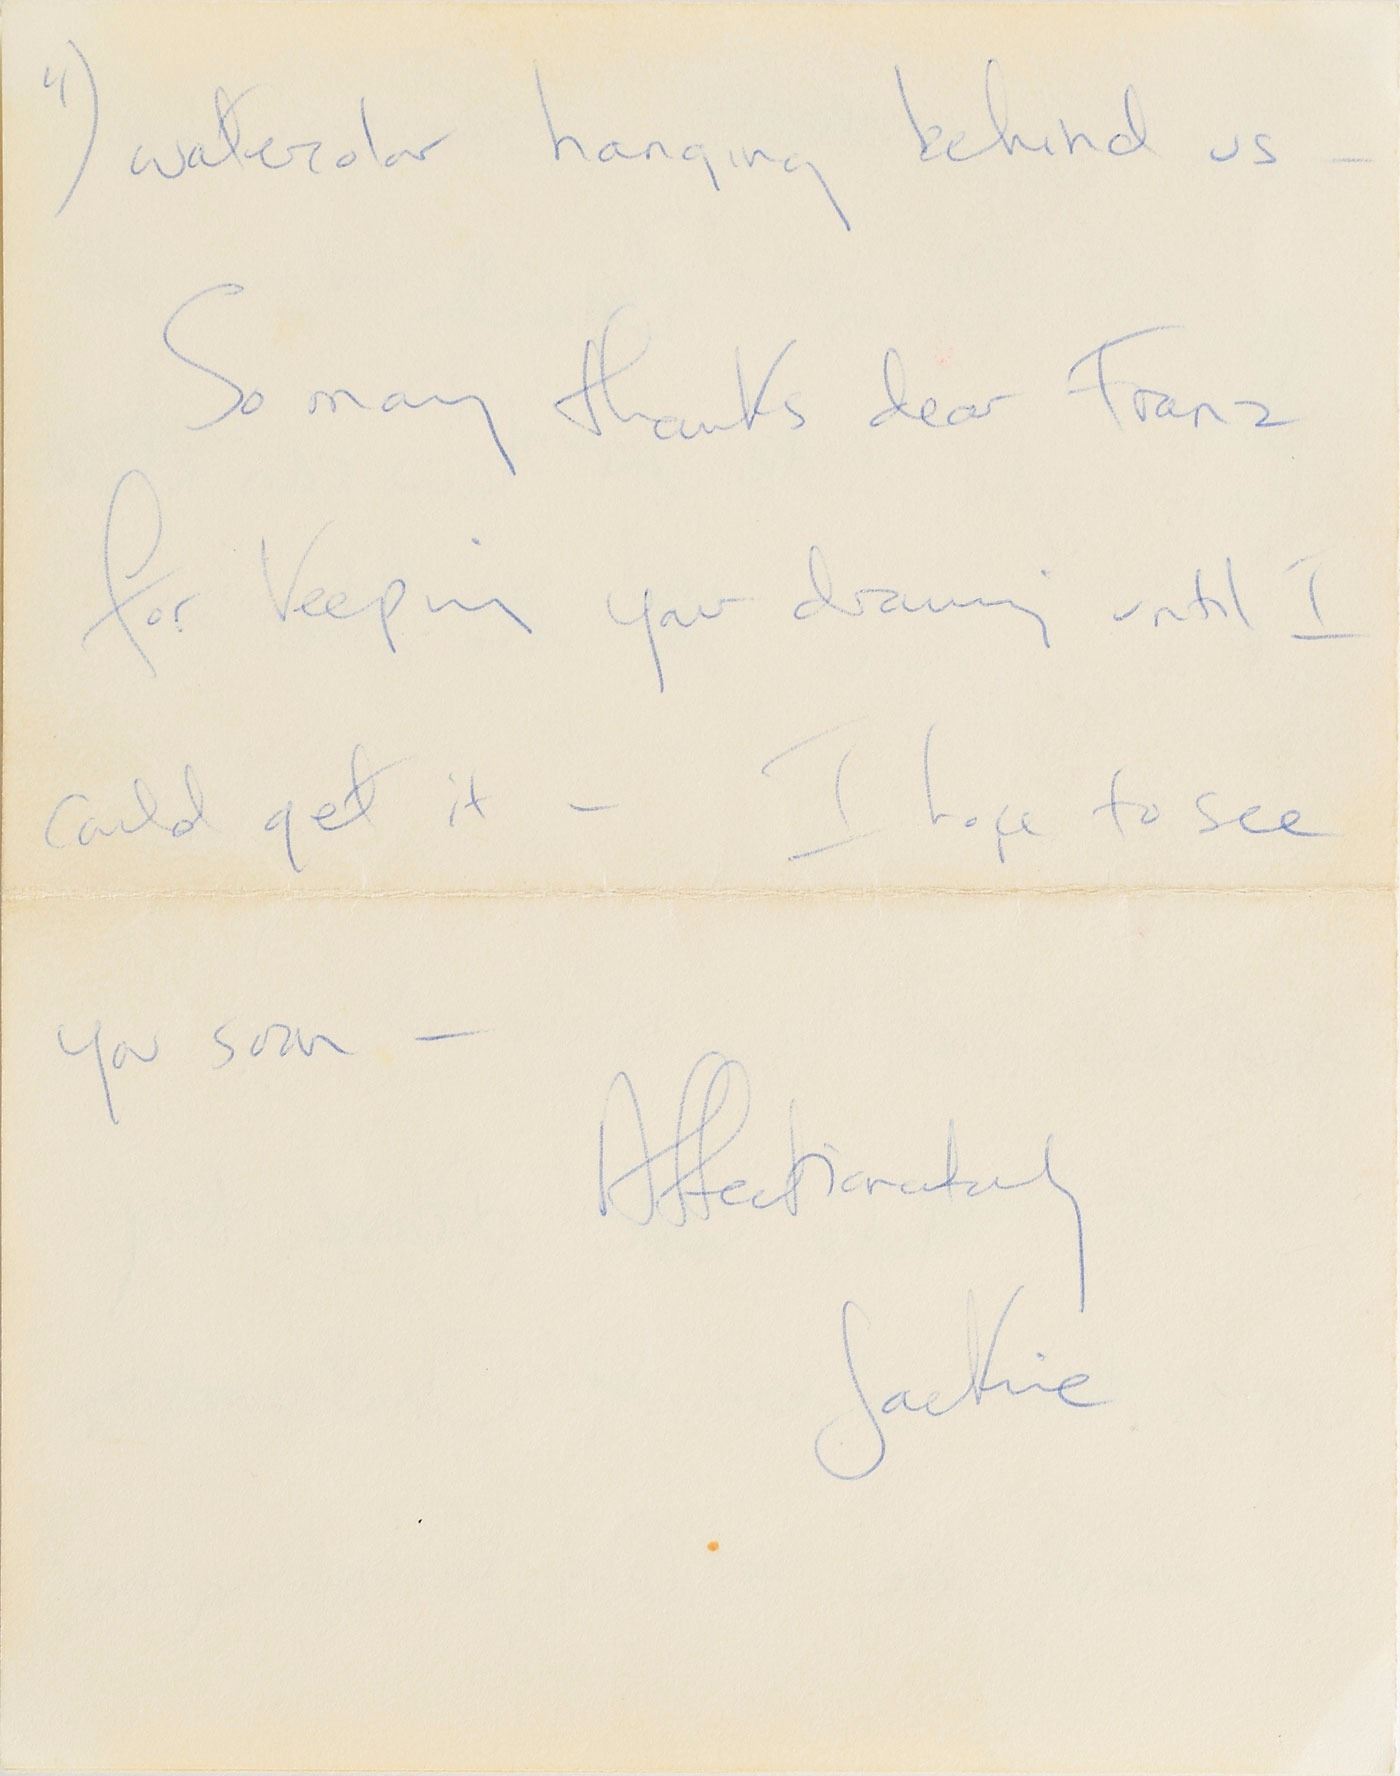 4) watercolor hanging behind us –
So many thanks dear Franz
for keeping your drawing until I
could get it – I hope to see
you soon –
Affectionately
Jackie